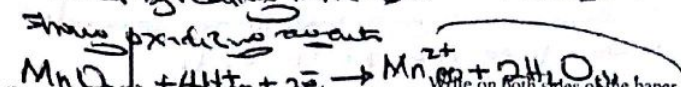 strong oxidizing agents
MnO₂ + 4H⁺ + 2e⁻ → Mn²⁺(aq) + 2H₂O
Write on both sides of the paper